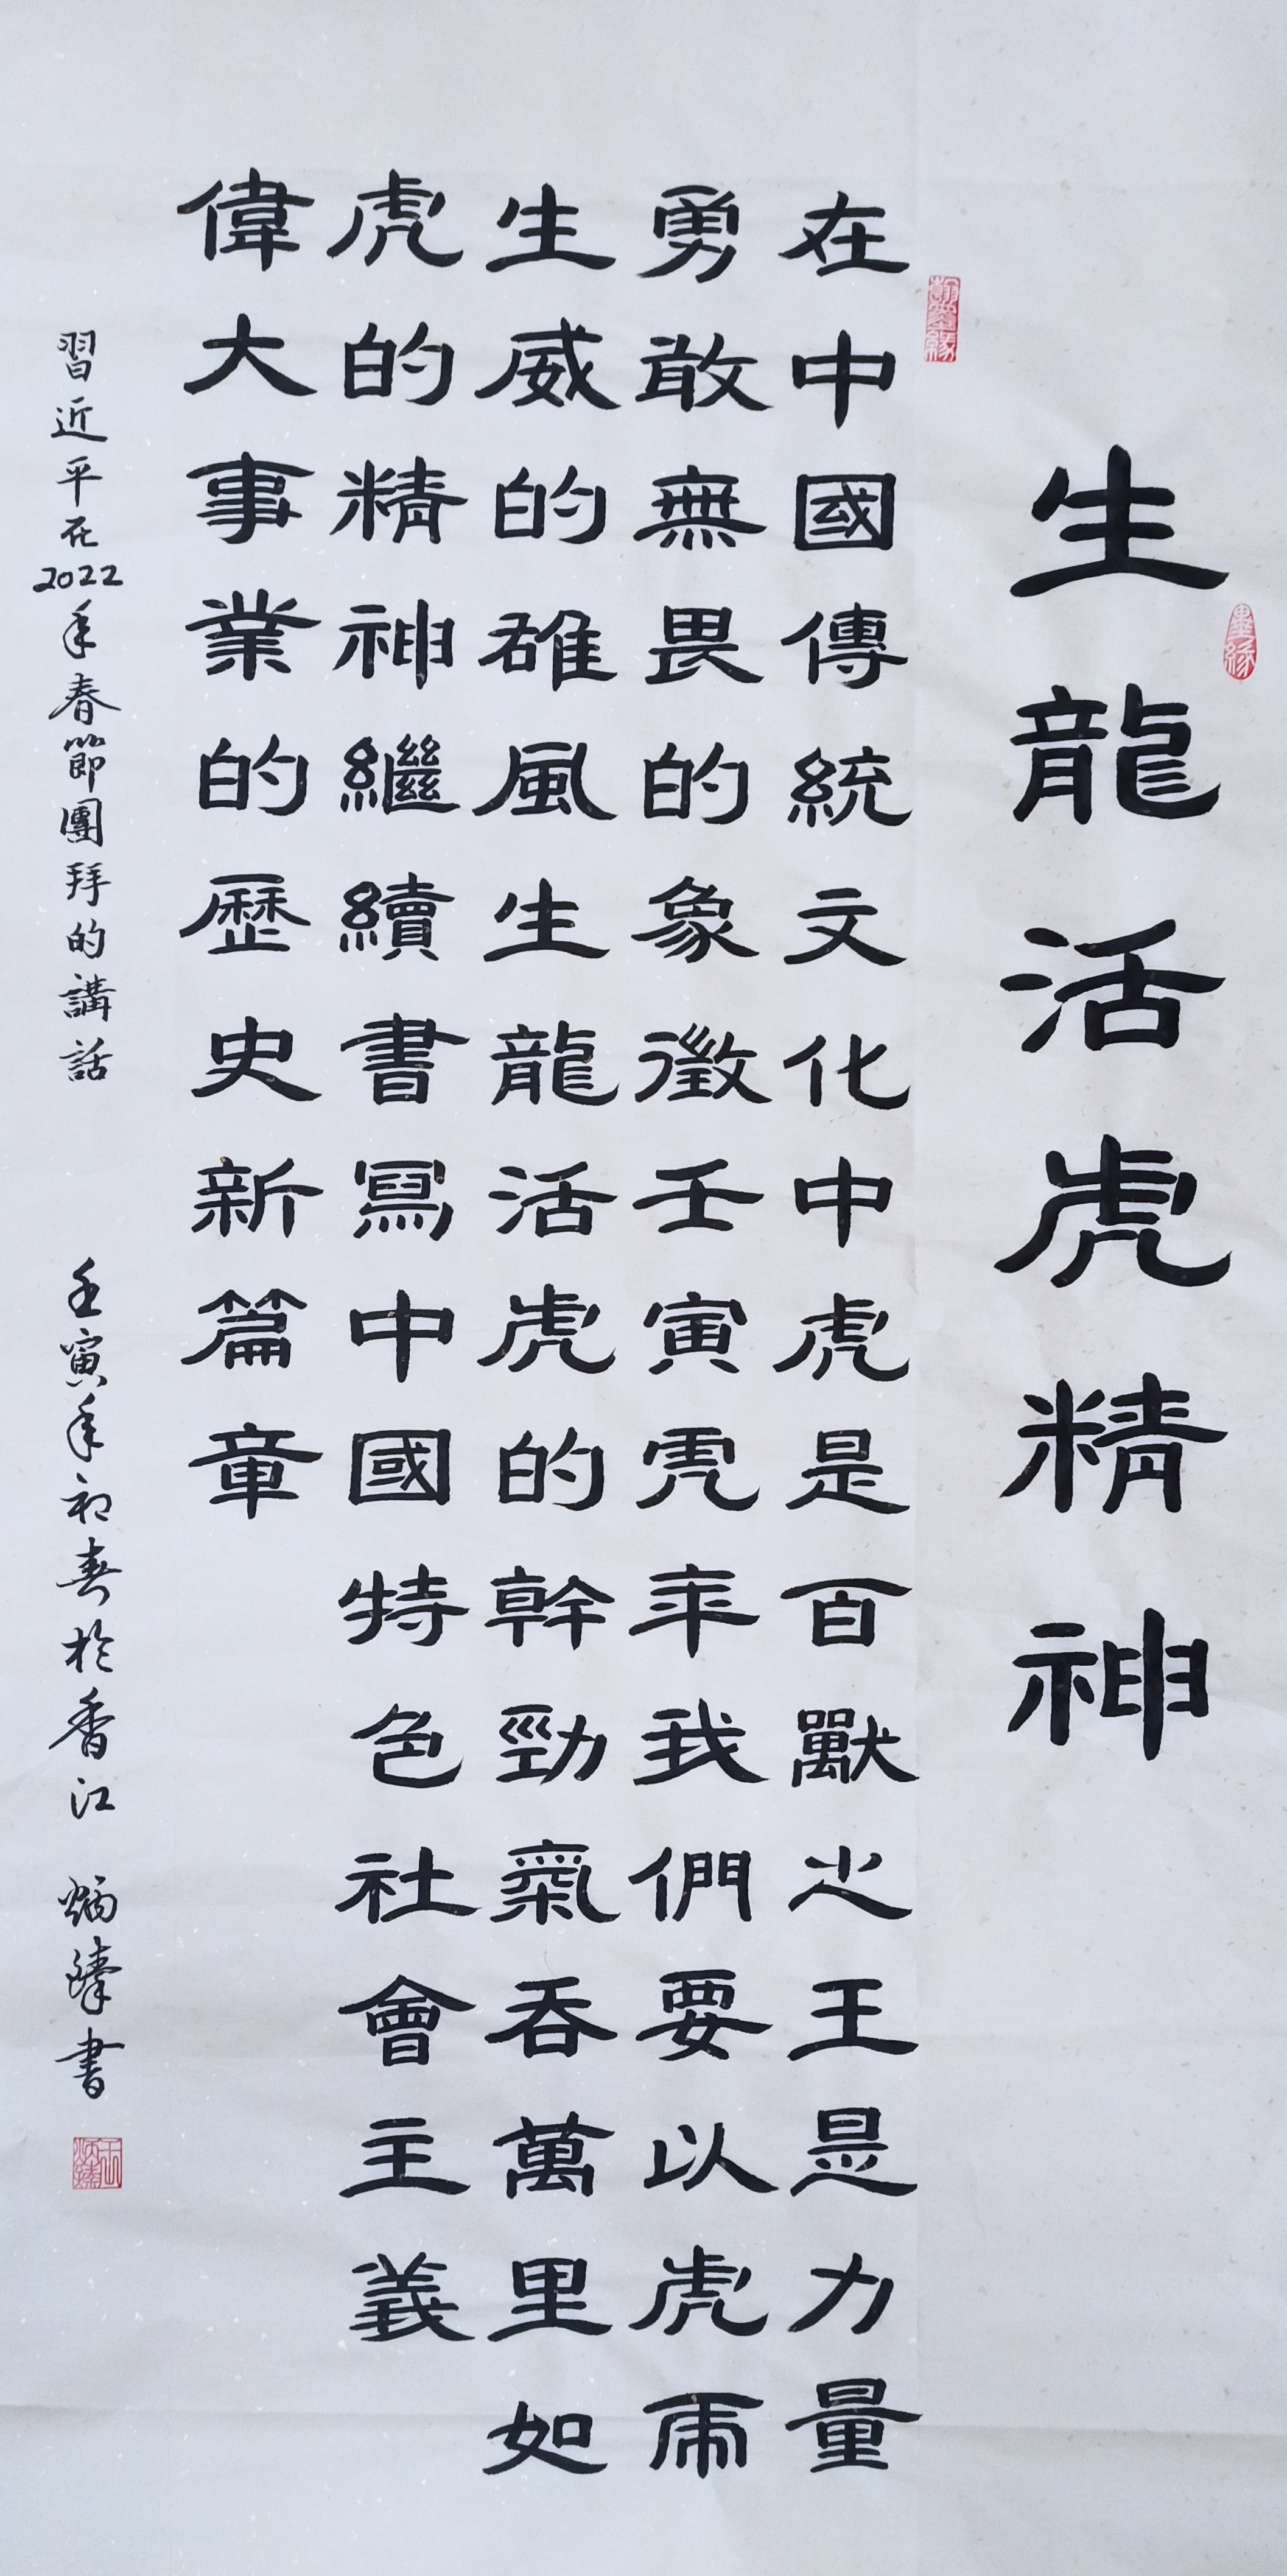 生龍活虎精神
墨緣
翰墨緣
在中國傳統文化中虎是百獸之王是力量
勇敢無畏的象徵壬寅虎年我們要以虎虎
生威的雄風生龍活虎的幹勁氣吞萬里如
虎的精神繼續書寫中國特色社會主義
偉大事業的歷史新篇章
習近平在2022年春節團拜的講話
壬寅年初春於香江 炳臻書